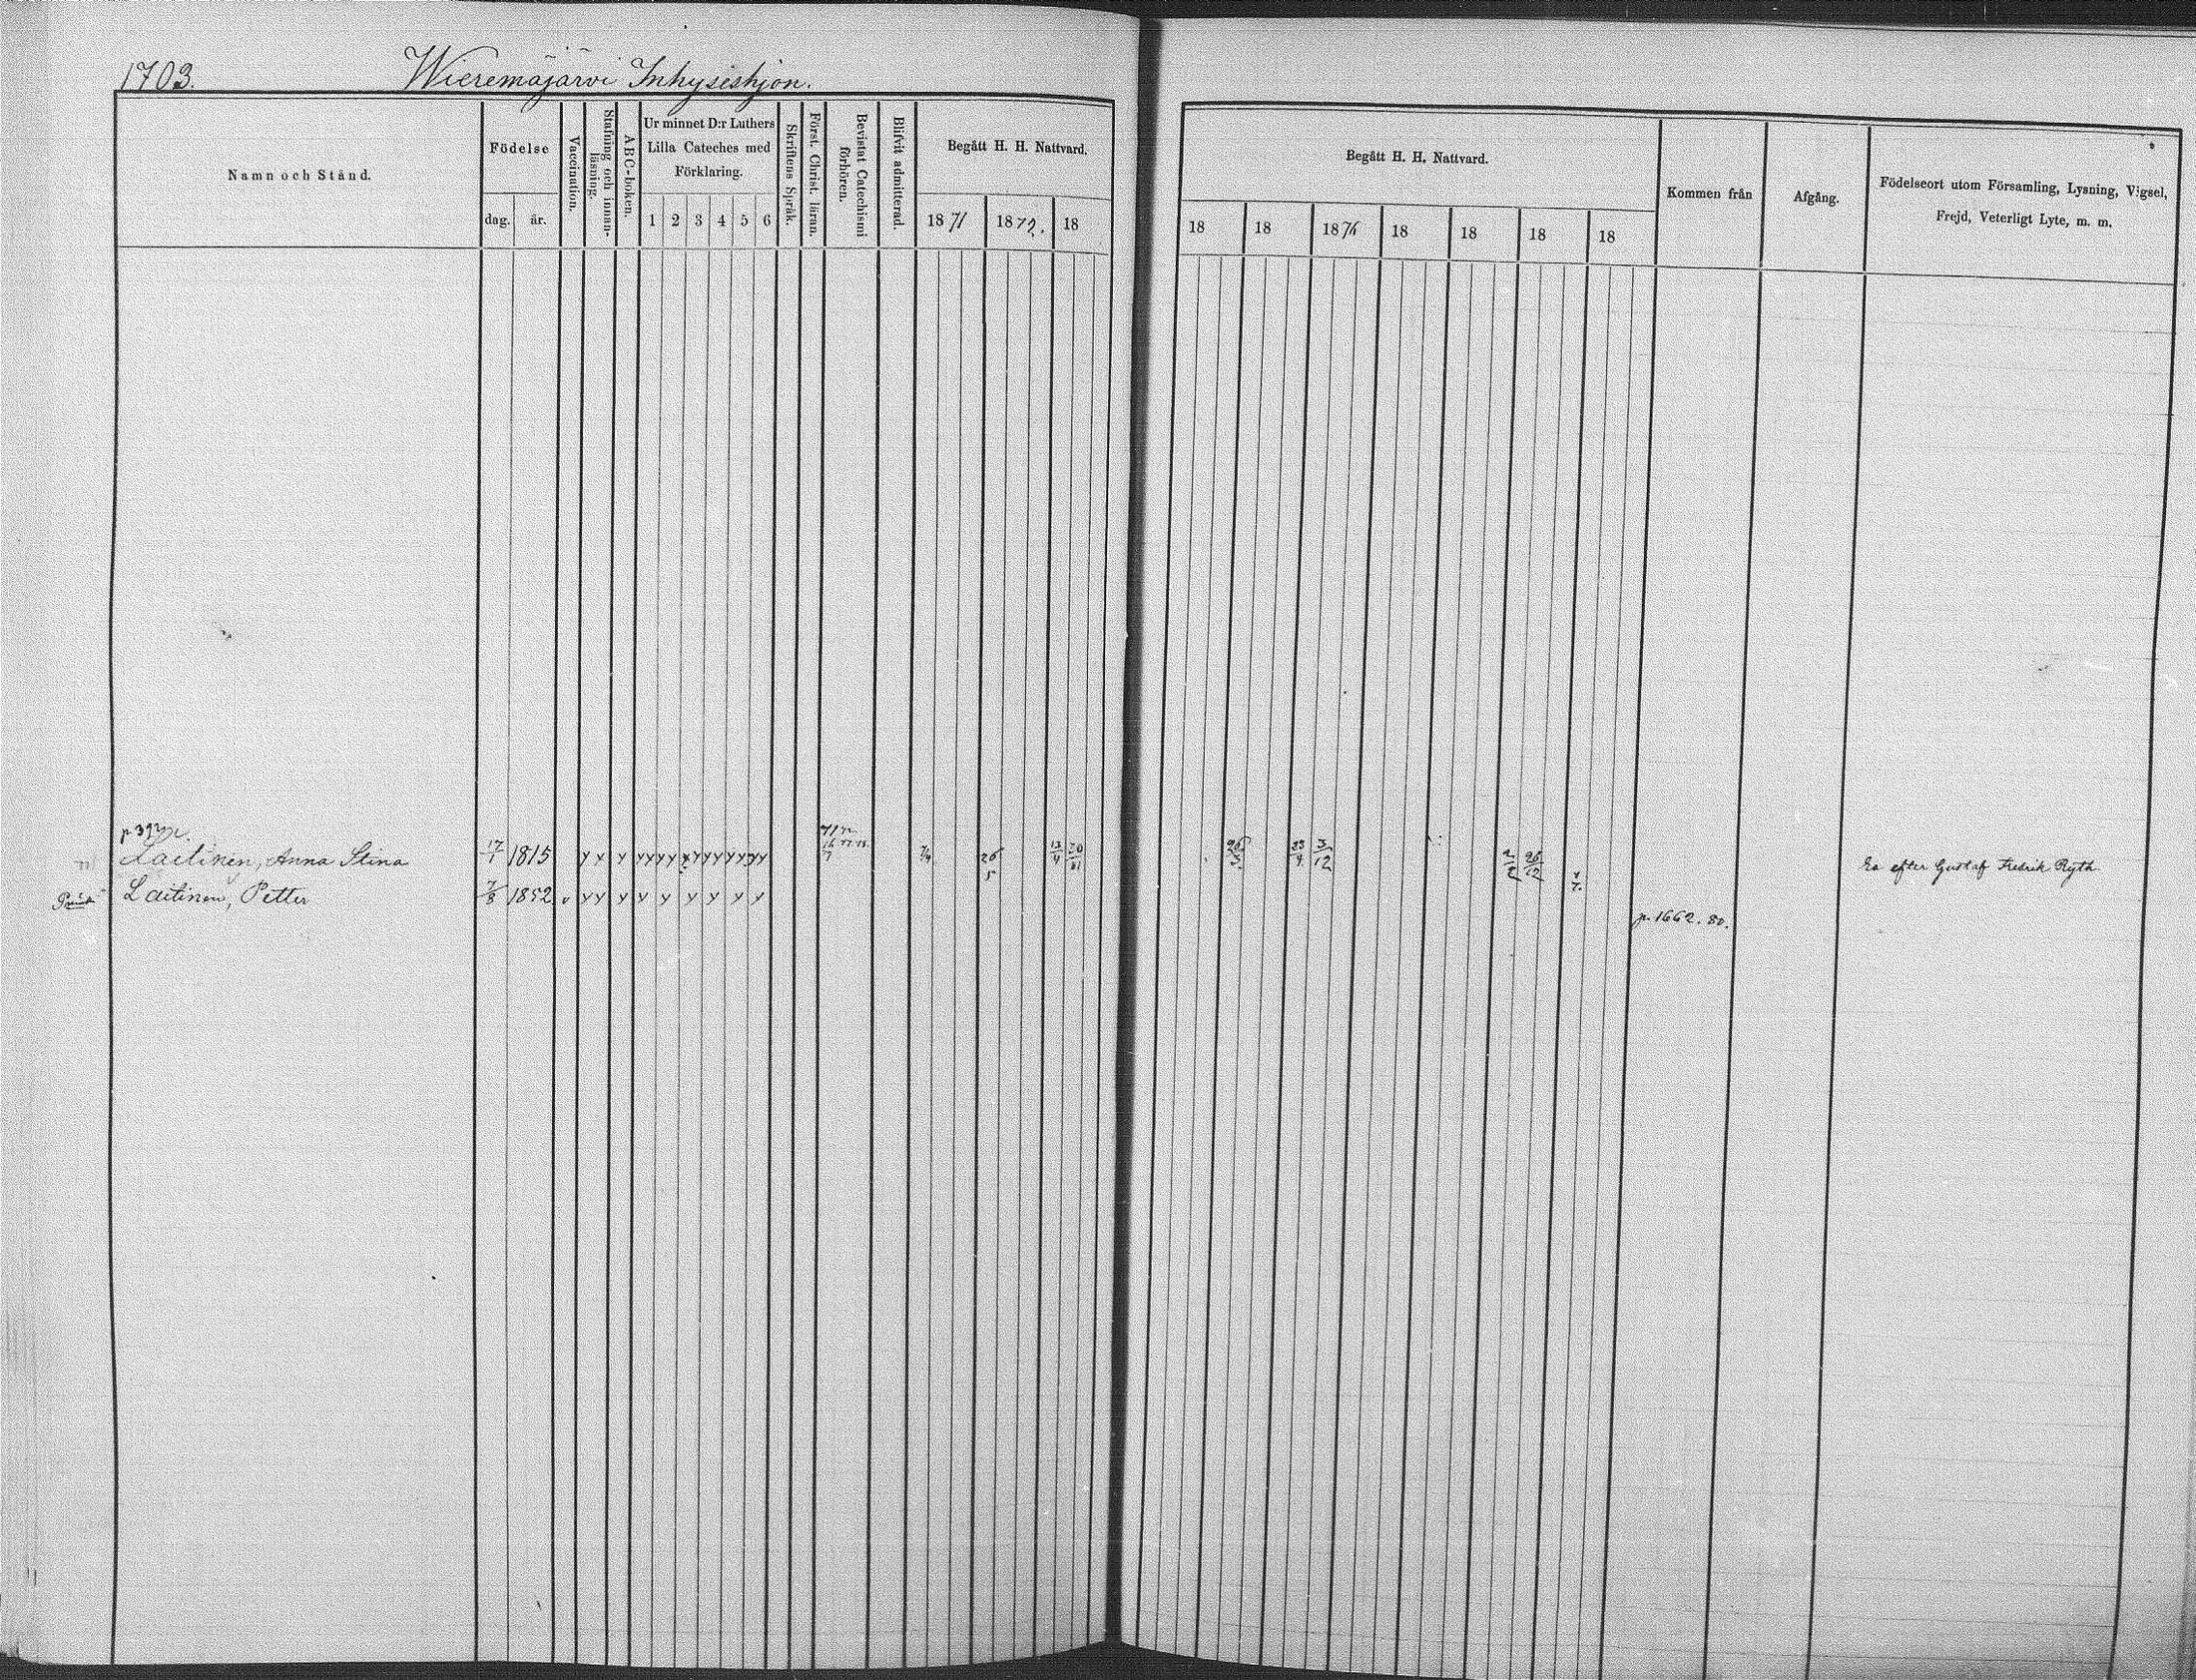 1703. Wieremäjärvi Inhyseshjon.
Namn och Stånd.
Födelse
dag. år.
Vaccination.
Stafning och innanläsning.
ABC-boken.
Ur minnet D:r Luthers
Lilla Cateches med
Förklaring.
1 2 3 4 5 6
Skriftens Språk.
Först. Christ. läran.
Bevistat Catechismi
förhören.
Blifvit admitterad.
Begått H. H. Nattvard.
1871 1872. 18
Begått H. H. Nattvard.
18 18 1876 18 18 18 18
Kommen från
Afgång.
Födelseort utom Församling, Lysning, Vigsel,
Frejd, Veterligt Lyte, m. m.
Laitinen, Anna Stina 17/1 1815 y x y yyyy xyyyyyyy 26/5 13/4 26/3 23/4 3/12 26/12 Ea efter Gustaf Fredrik Ryth
Laitinen, Petter 7/8 1852 v y y y y y y y y y
p. 1662. 80.